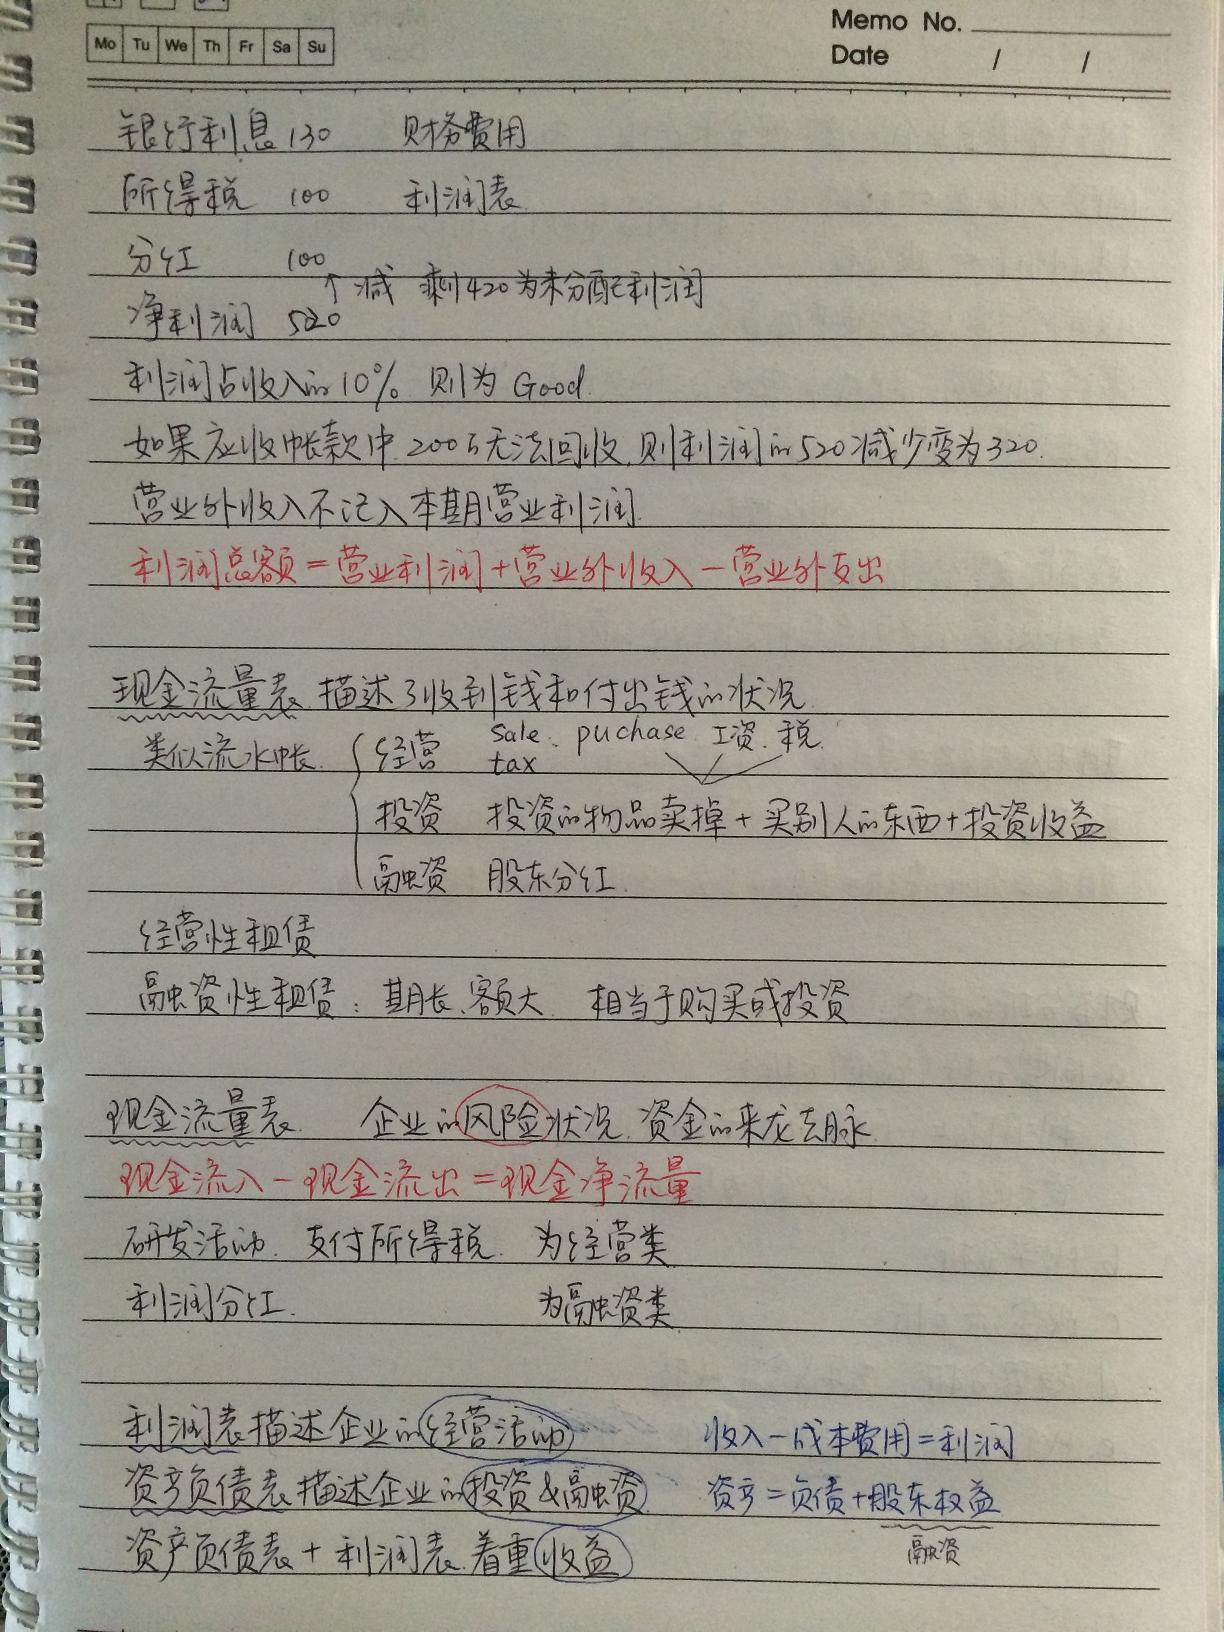 Memo No.
Mo Tu We Th Fr Sa Su
Date / /
银行利息 130 财务费用
所得税 100 利润表
分红 100
↑减 剩420为未分配利润
净利润 520
利润占收入的10% 则为Good.
如果应收帐款中200万无法回收,则利润的520减少变为320.
营业外收入不记入本期营业利润.
利润总额=营业利润+营业外收入-营业外支出
现金流量表 描述了收到钱和付出钱的状况
类似流水帐. 经营 sale、puchase 工资、税.
tax
投资 投资的物品卖掉+买别人的东西+投资收益
融资 股东分红.
经营性租赁
融资性租赁: 期长、额大 相当于购买或投资
现金流量表. 企业的风险状况.资金的来龙去脉.
现金流入-现金流出=现金净流量
研发活动、支付所得税、为经营类
利润分红. 为融资类
利润表描述企业的经营活动 收入-成本费用=利润
资产负债表描述企业的投资&融资 资产=负债+股东权益
资产负债表+利润表.着重收益 融资